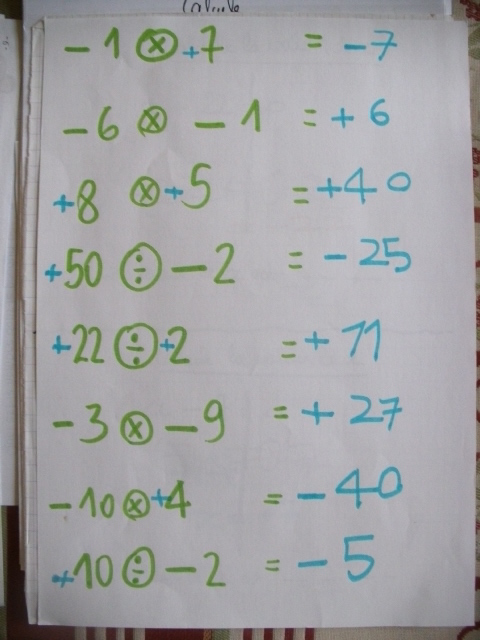 Calcule
- 1 ⊗ +7 = - 7
- 6 ⊗ - 1 = + 6
+8 ⊗ +5 = +40
+50 ⨸ - 2 = - 25
+22 ⨸ +2 = + 11
- 3 ⊗ - 9 = + 27
- 10 ⊗ +4 = - 40
+10 ⨸ - 2 = - 5